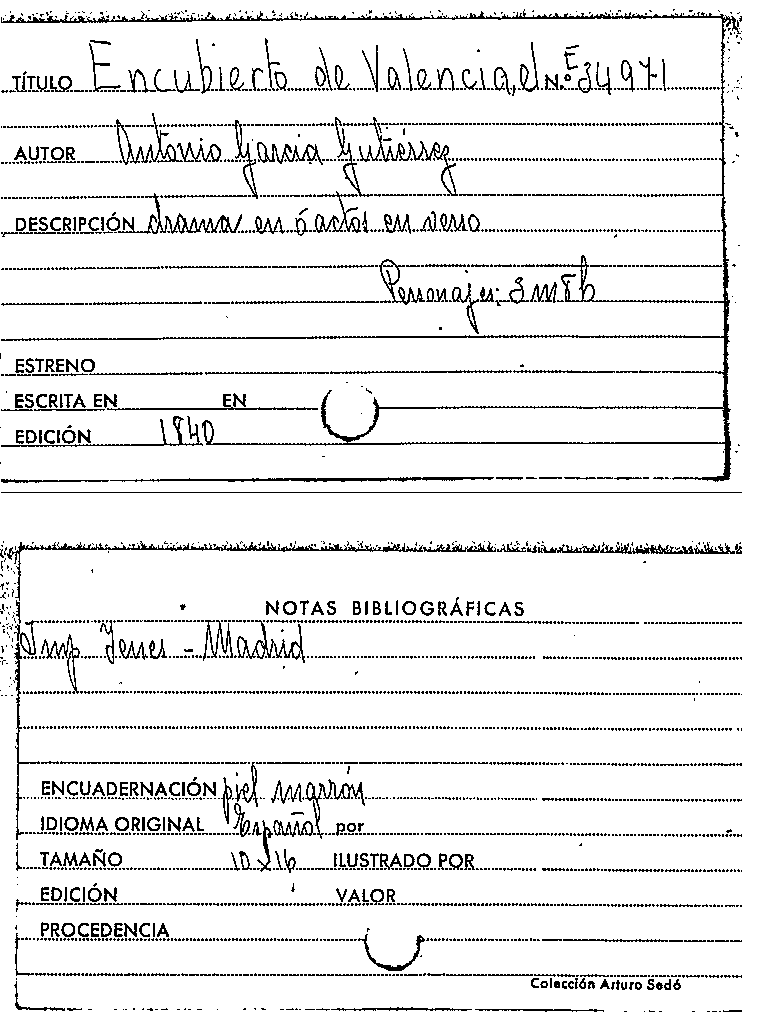 TÍTULO Encubierto de Valencia, el N.º E 34971
AUTOR Antonio García Gutiérrez
DESCRIPCIÓN drama en 5 actos en verso
Personajes: 3m 8h
ESTRENO
ESCRITA EN EN
EDICIÓN 1840
NOTAS BIBLIOGRÁFICAS
Imp Yenes - Madrid
ENCUADERNACIÓN piel marrón
IDIOMA ORIGINAL Español por
TAMAÑO 10x16 ILUSTRADO POR
EDICIÓN VALOR
PROCEDENCIA
Colección Arturo Sedó